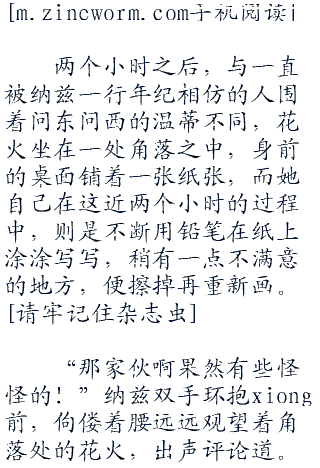 [m.zincworm.com手机阅读i
两个小时之后，与一直
被纳兹一行年纪相仿的人围
着问东问西的温蒂不同，花
火坐在一处角落之中，身前
的桌面铺着一张纸张，而她
自己在这近两个小时的过程
中，则是不断用铅笔在纸上
涂涂写写，稍有一点不满意
的地方，便擦掉再重新画。
[请牢记住杂志虫]
“那家伙啊果然有些怪
怪的！”纳兹双手环抱xiong
前，佝偻着腰远远观望着角
落处的花火，出声评论道。